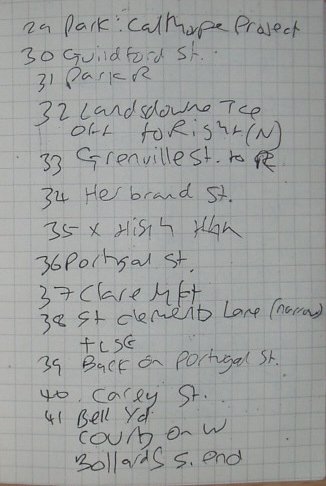 29 Park: Calthorpe Project
30 Guildford St.
31 Park R
32 Landsdowne Tce
off to Right (N)
33 Grenville St. to R
34 Herbrand St.
35 x High High
36 Portugal St.
37 Clare Mkt
38 St Clements Lane (narrow)
+ LSE
39 Back on Portugal St.
40. Carey St.
41 Bell Yd
courts on W
Bollards S. end